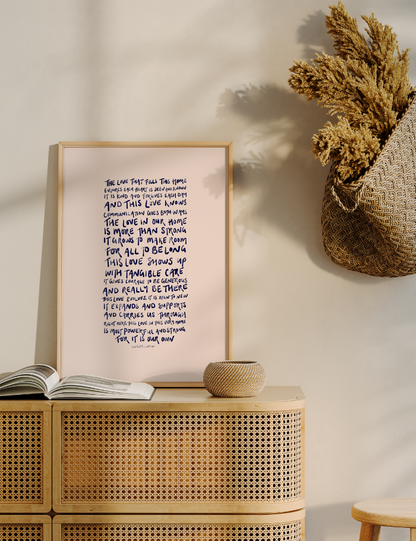 THE LOVE THAT FILLS THIS HOME
ENSURES EACH HEART IS SEEN AND KNOWN
IT IS KIND AND FORGIVES EACH DAY
AND THIS LOVE KNOWS
COMMUNICATION GOES BOTH WAYS
THE LOVE IN OUR HOME
IS MORE THAN STRONG
IT GROWS TO MAKE ROOM
FOR ALL TO BELONG
THIS LOVE SHOWS UP
WITH TANGIBLE CARE
IT GIVES COURAGE TO BE GENEROUS
AND REALLY BE THERE
THIS LOVE EVOLVES IT IS NEW TO NEW
IT EXPANDS AND SUPPORTS
AND CARRIES US THROUGH
RIGHT HERE THIS LOVE IN THIS VERY HOME
IS MOST POWERFUL AND STRONG
FOR IT IS OUR OWN